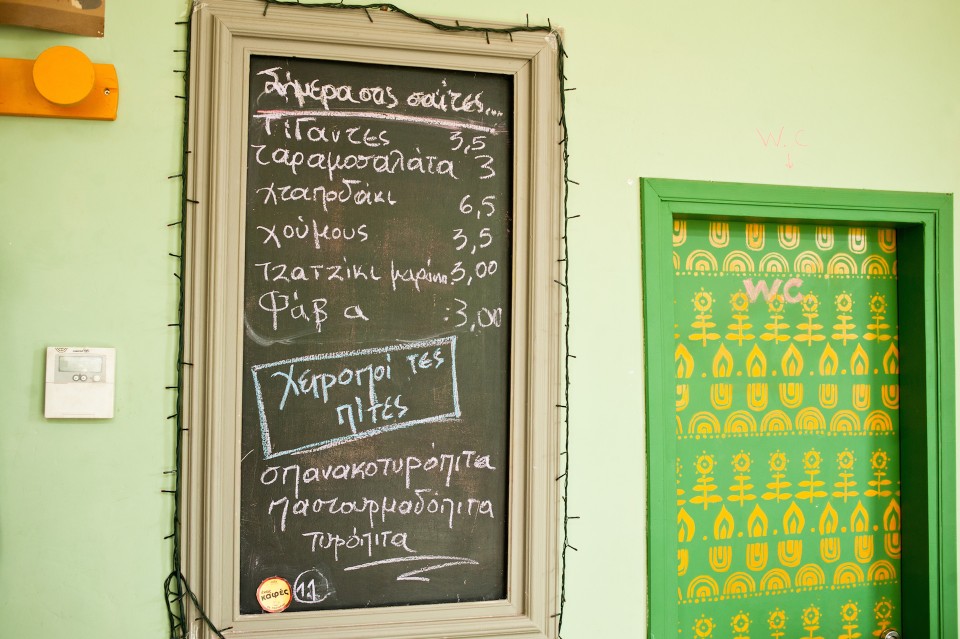 Σήμερα στις σαΐτες...
Γίγαντες 3,5
ταραμοσαλάτα 3
χταποδάκι 6,5
χούμους 3,5
τζατζίκι 3,00
Φάβα :3,00
Χειροποίητες
πίτες
σπανακοτυρόπιτα
παστουρμαδόπιτα
τυρόπιτα
καιρές
11
W.C
WC